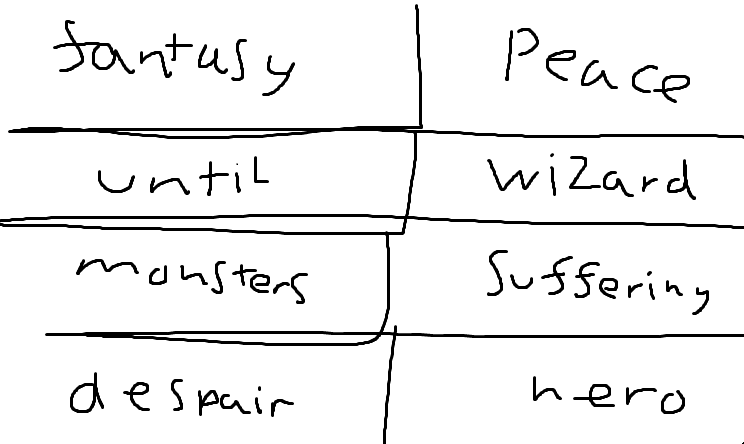 fantasy Peace
until wizard
monsters suffering
despair hero